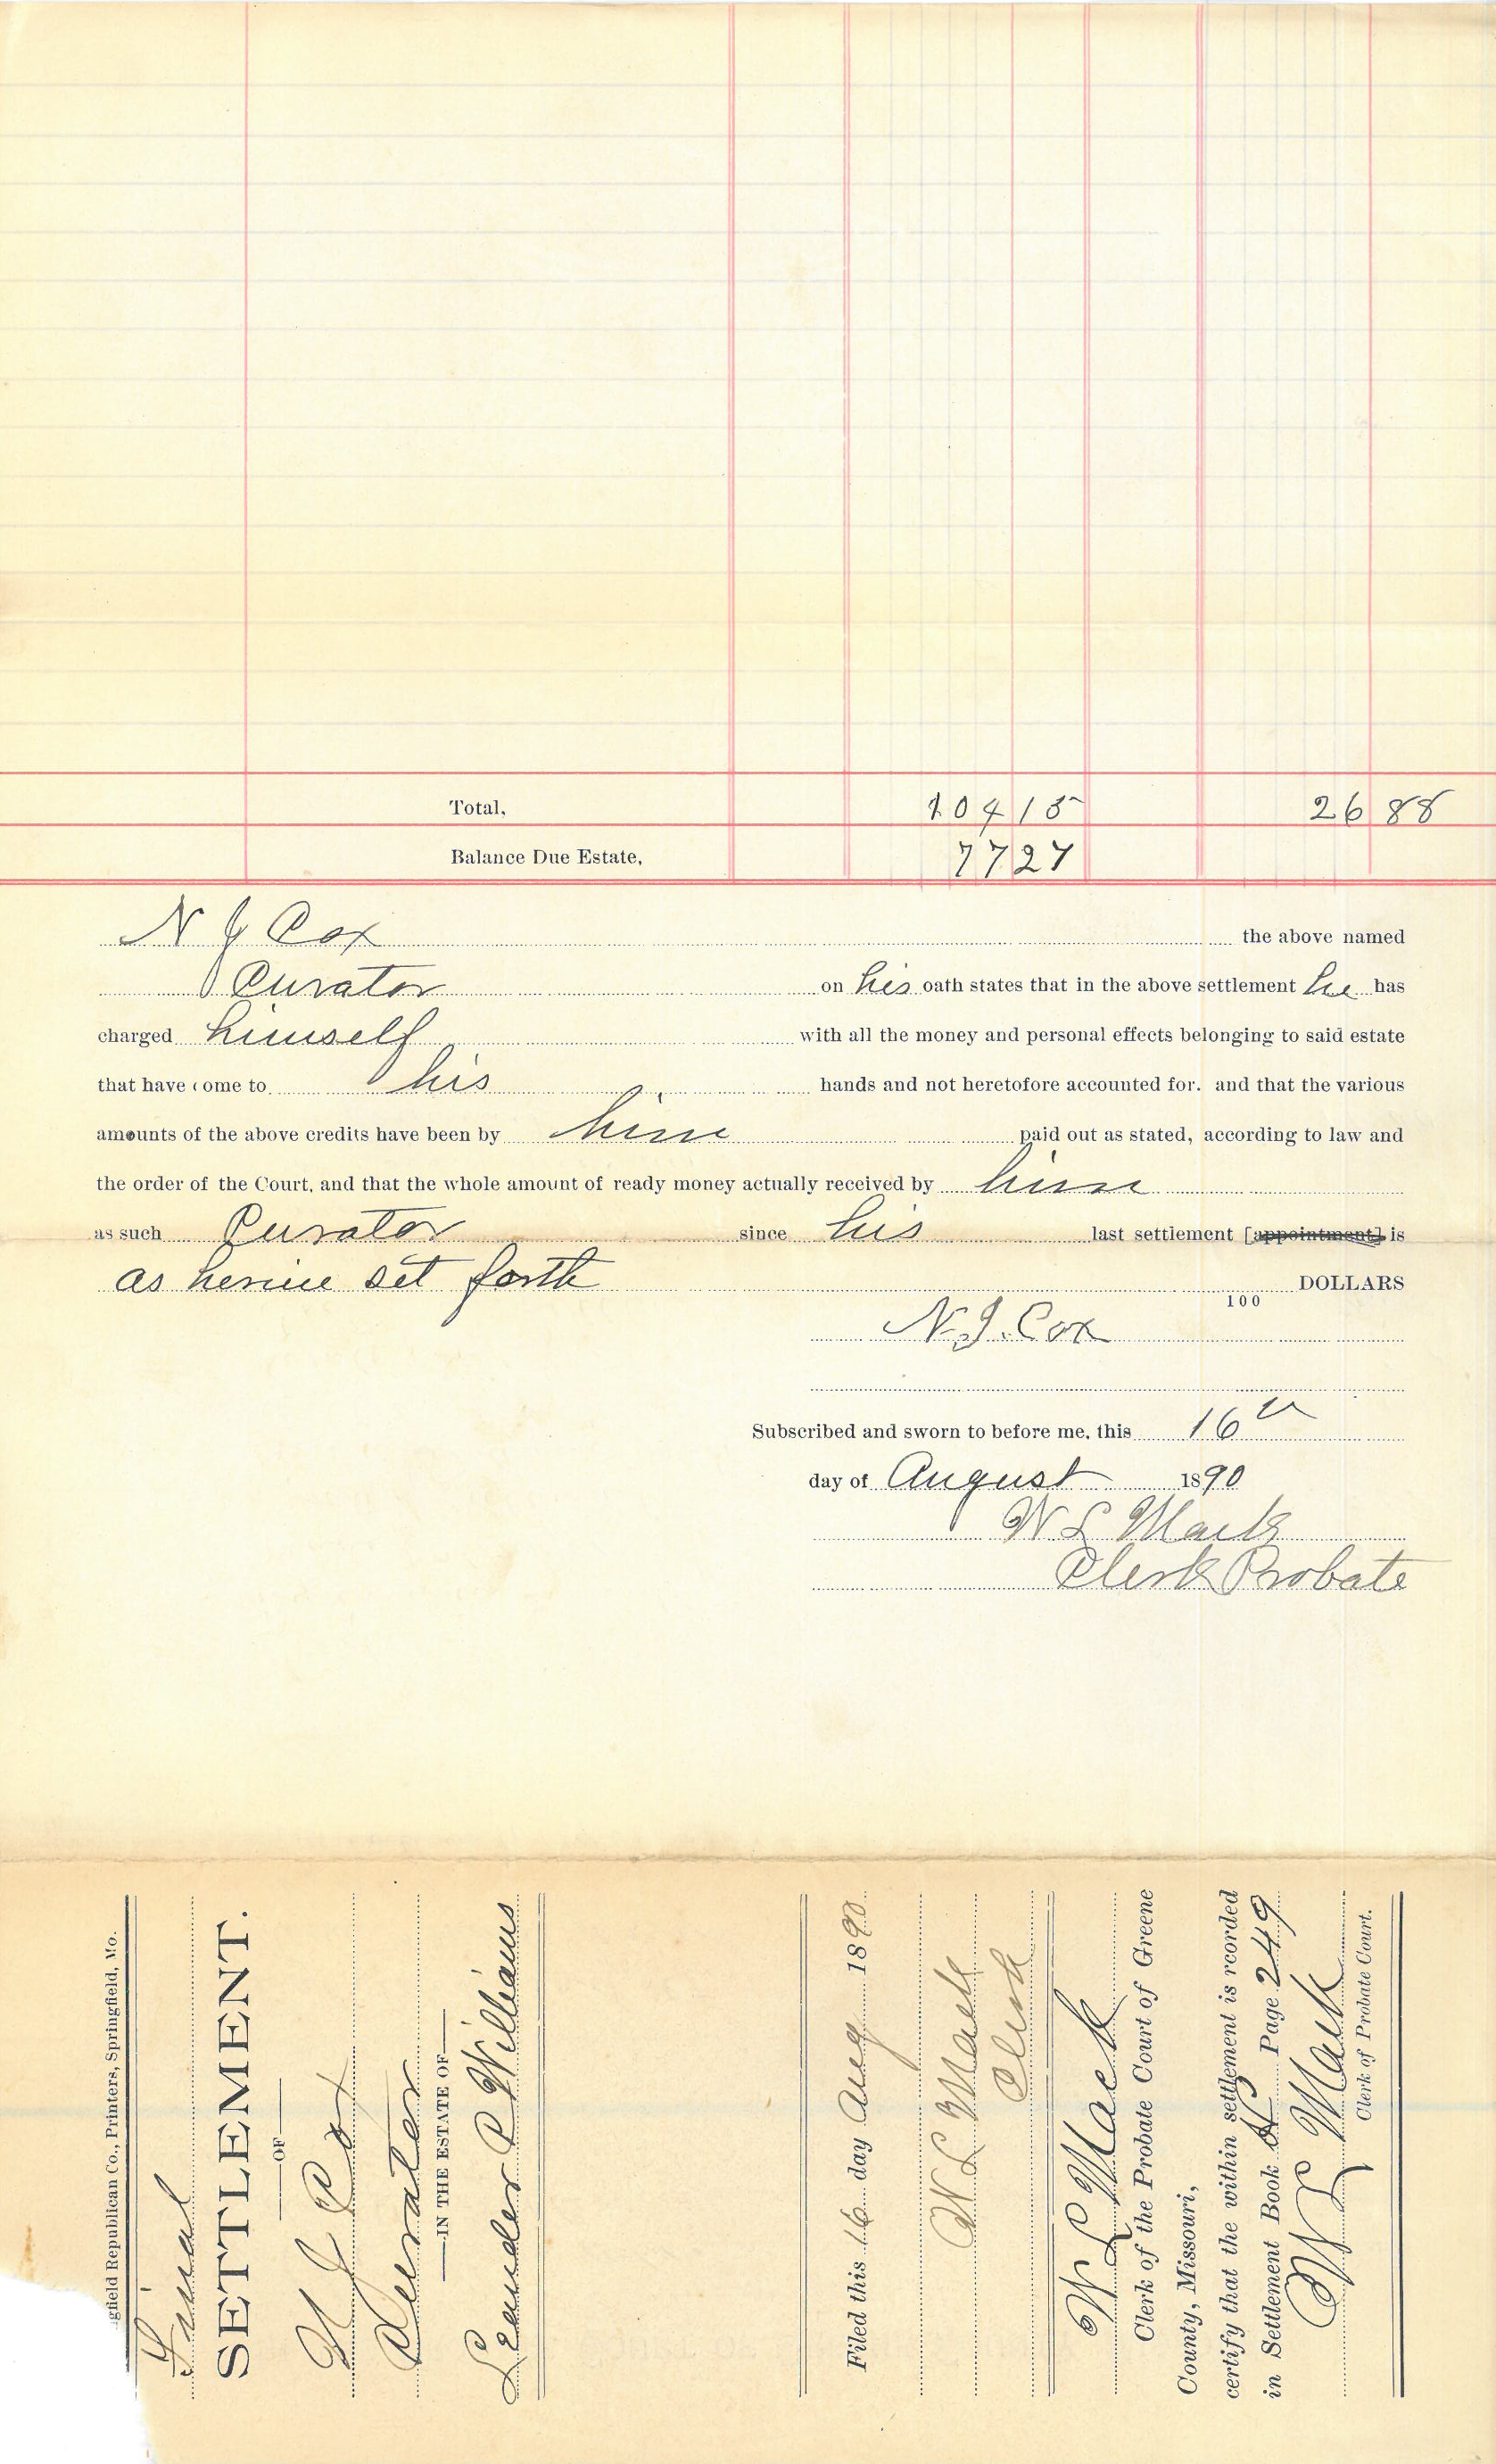 Total, 104 15 26 88
Balance Due Estate, 77 27
N J Cox the above named
Curator on his oath states that in the above settlement he has
charged himself with all the money and personal effects belonging to said estate
that have come to his hands and not heretofore accounted for. and that the various
amounts of the above credits have been by him paid out as stated, according to law and
the order of the Court, and that the whole amount of ready money actually received by him
as such Curator since his last settlement [appointment] is
as herine set forth DOLLARS
100
N. J. Cox
Subscribed and sworn to before me, this 16th
day of August 1890
W L Mack
Clerk Probate
gfield Republican Co., Printers, Springfield, Mo.
Final
SETTLEMENT.
OF
N J Cox
Curator
IN THE ESTATE OF
Leander P Williams
Filed this 16 day Aug 1890
W L Mack
Clerk
W L Mack
Clerk of the Probate Court of Greene
County, Missouri,
certify that the within settlement is rcorded
in Settlement Book Page 249
W L Mack
Clerk of Probate Court.